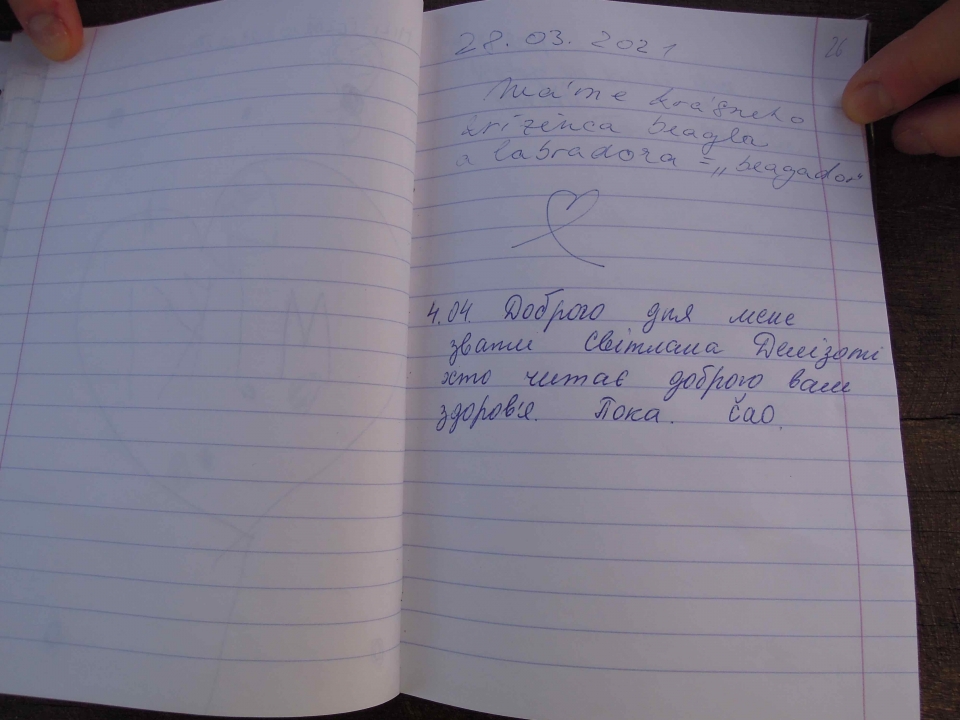 28.03.2021
26
Máme krásneho
krízenca beagla
a labradora = „beagador“
4.04. Доброго дня мене
звати Світлана
хто читає доброго вам
здоров'я. Пока. Čao.